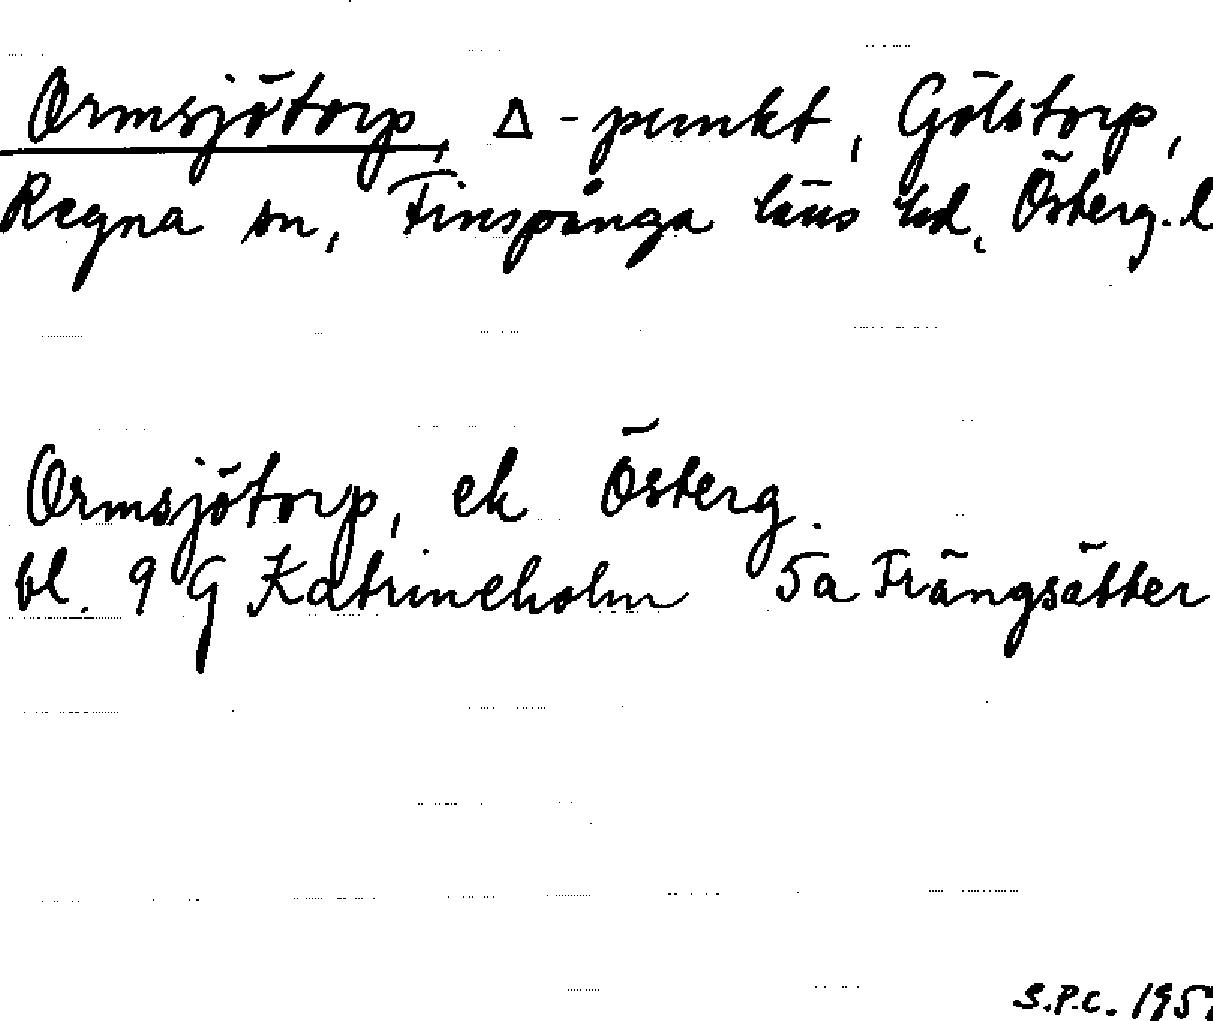 Ormsjötorp, Δ-punkt, Gölstorp,
Regna sn, Finspånga läns hd, Österg. l
Ormsjötorp, ek Österg.
bl. 9 G Katrineholm 5a Trängsätter
S.P.C. 195